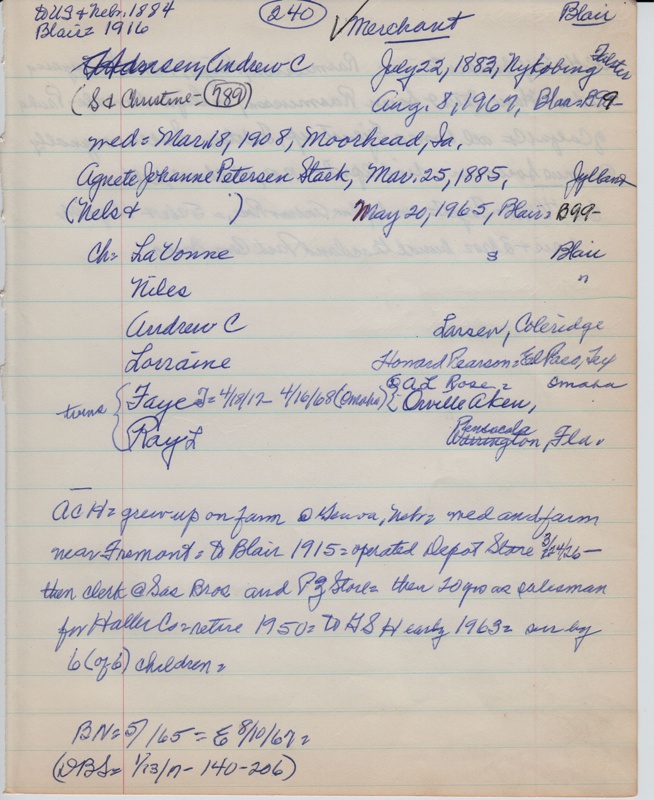 to US & Nebr. 1884
Blair = 1916
240
✓ Merchant
Blair
Hansen, Andrew C July 22, 1883, Nykobing Falster
(S & Christine = 789) Aug. 8, 1967, Blair = B99-
med = Mar. 18, 1908, Moorhead, Ia.
Agnete Johanne Petersen Stark, Mar. 25, 1885, Jylland
(Nels & ) May 20, 1965, Blair = B99-
Ch = LaVonne s Blair
Niles "
Andrew C Larsen, Coleridge
Lorraine Howard Pearson = El Paso, Tex
twins { Faye T = 4/18/17 - 4/16/68 (Omaha) A L Rose = Omaha
Orville Aken,
Ray L Pensacola
Warrington, Fla.
ACH = grew up on farm @ Genva, Nebr = med and farm
near Fremont = to Blair 1915 = operated Depot Store 3/24/26 -
then clerk @ Sas Bros and PZ Store = then 20 yrs as salesman
for Haller Co = retire 1950 = to GSH early 1963 = sur by
6 (of 6) children =
BN = 5/ /65 = E 8/10/67 =
(DBS = 1/13/ - 140-206)